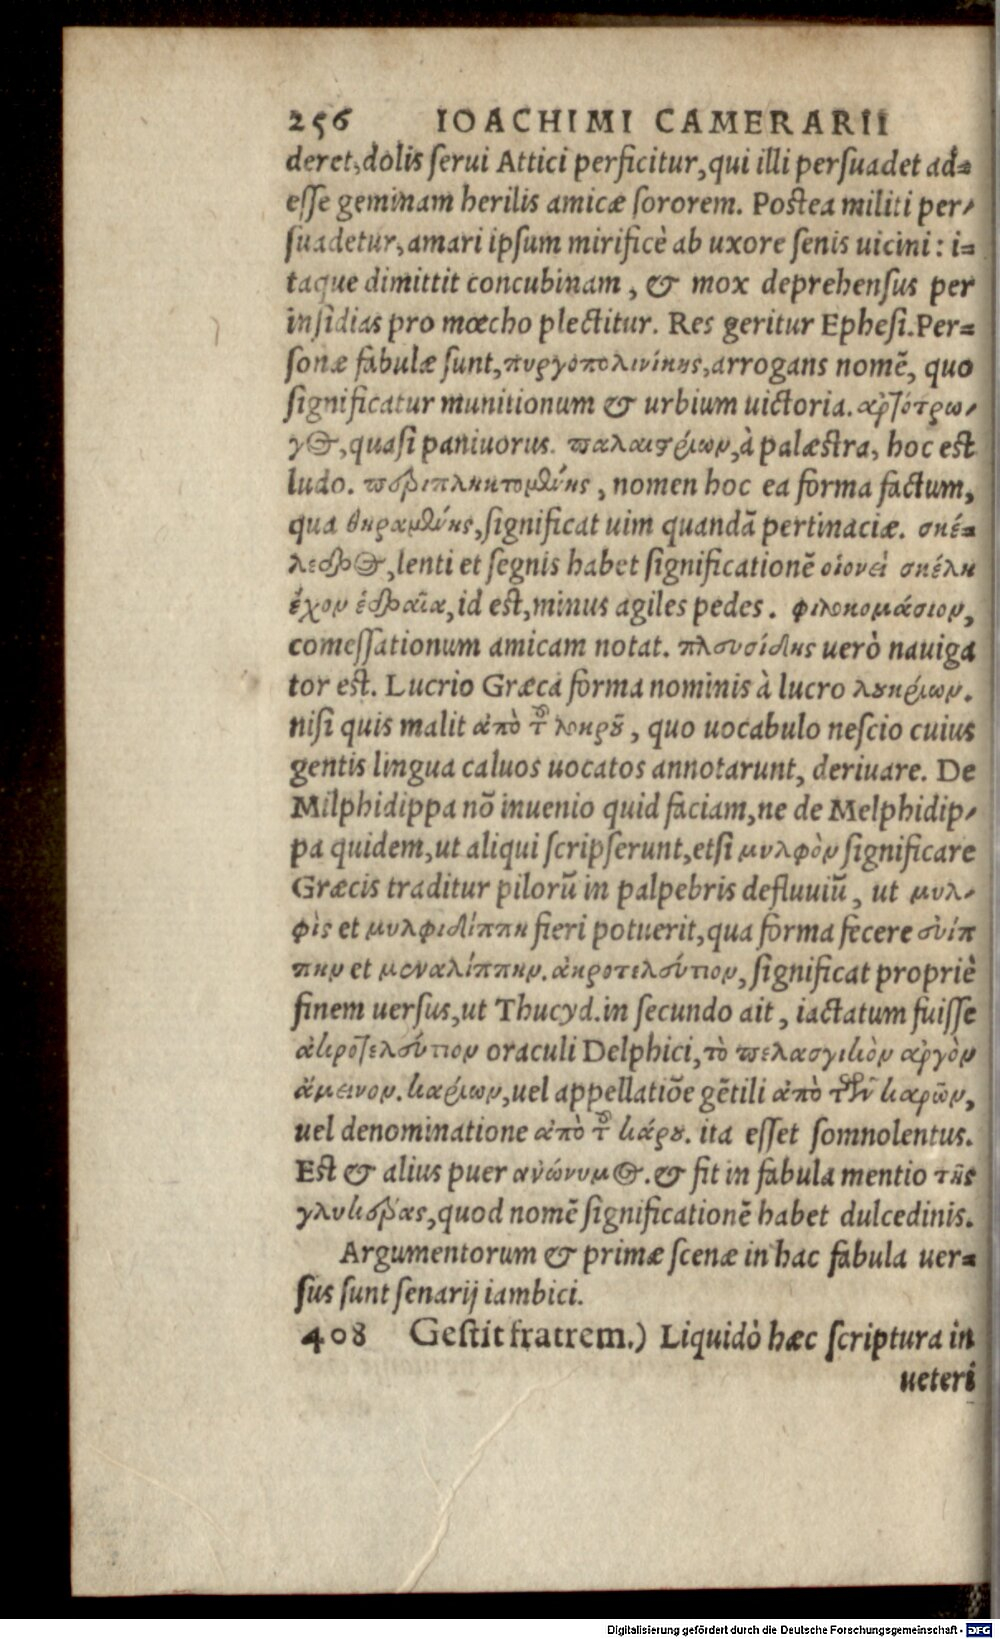 256 IOACHIMI CAMERARII
deret, dolis serui Attici perficitur, qui illi persuadet ad=
esse geminam herilis amicæ sororem. Postea militi per/
suadetur, amari ipsum mirificè ab uxore senis uicini: i=
taque dimittit concubinam, & mox deprehensus per
insidias pro mœcho plectitur. Res geritur Ephesi. Per=
sonæ fabulæ sunt, πυργοπολινίκης, arrogans nomē, quo
significatur munitionum & urbium uictoria. αρτότρω/
γος, quasi paniuorus. παλαιστρίων, à palæstra, hoc est
ludo. περιπληκτομένης, nomen hoc ea forma factum,
qua θηραμένης, significat uim quandā pertinaciæ. σκέ=
λεδρος, lenti et segnis habet significationē οἱονεὶ σκέλη
ἔχον ἑδραῖα, id est, minus agiles pedes. φιλοκομάσιον,
comessationum amicam notat. πλευσίδης uerò nauiga
tor est. Lucrio Græca forma nominis à lucro λουκρίων.
nisi quis malit ἀπὸ τοῦ λοκροῦ, quo uocabulo nescio cuius
gentis lingua caluos uocatos annotarunt, deriuare. De
Milphidippa nō inuenio quid faciam, ne de Melphidip/
pa quidem, ut aliqui scripserunt, etsi μυλφὸν significare
Græcis traditur pilorū in palpebris defluuiū, ut μυλ/
φὶς et μυλφιδίππη fieri potuerit, qua forma fecere εὐίπ
πην et μεναλίππην. ἀκροτελεύτιον, significat propriè
finem uersus, ut Thucyd. in secundo ait, iactatum fuisse
ἀκροτελεύτιον oraculi Delphici, τὸ πελασγικὸν αργὸν
ἄμεινον. καρίων, uel appellatiōe gētili ἀπὸ τῶν καρῶν,
uel denominatione ἀπὸ τοῦ κάρου. ita esset somnolentus.
Est & alius puer ανώνυμος. & fit in fabula mentio τῆς
γλυκέρας, quod nomē significationē habet dulcedinis.
Argumentorum & primæ scenæ in hac fabula uer=
sus sunt senarij iambici.
408 Gestit fratrem.) Liquidò hæc scriptura in
ueteri
Digitalisierung gefördert durch die Deutsche Forschungsgemeinschaft - DFG